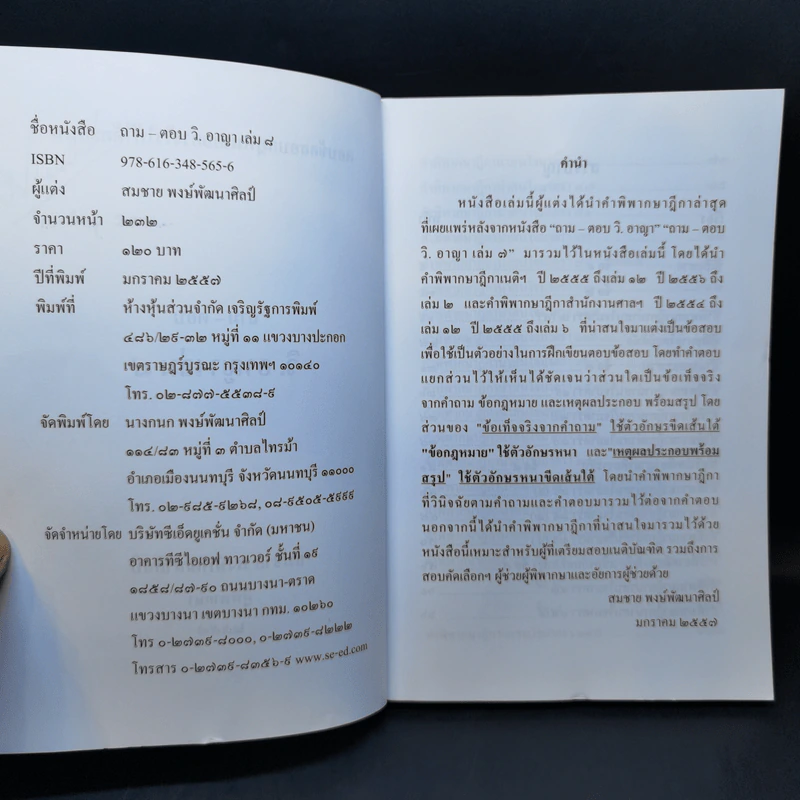 ชื่อหนังสือ ถาม – ตอบ วิ. อาญา เล่ม ๘
ISBN 978-616-348-565-6
ผู้แต่ง สมชาย พงษ์พัฒนาศิลป์
จำนวนหน้า ๒๓๒
ราคา ๑๒๐ บาท
ปีที่พิมพ์ มกราคม ๒๕๕๗
พิมพ์ที่ ห้างหุ้นส่วนจำกัด เจริญรัฐการพิมพ์
๔๘๖/๒๙-๓๒ หมู่ที่ ๑๑ แขวงบางปะกอก
เขตราษฎร์บูรณะ กรุงเทพฯ ๑๐๑๔๐
โทร. ๐๒-๘๗๗-๕๕๓๘-๙
จัดพิมพ์โดย นางกนก พงษ์พัฒนาศิลป์
๑๑๔/๘๓ หมู่ที่ ๓ ตำบลไทรม้า
อำเภอเมืองนนทบุรี จังหวัดนนทบุรี ๑๑๐๐๐
โทร. ๐๒-๙๘๕-๙๒๖๘, ๐๘-๙๕๐๕-๕๙๙๙
จัดจำหน่ายโดย บริษัทซีเอ็ดยูเคชั่น จำกัด (มหาชน)
อาคารทีซีไอเอฟ ทาวเวอร์ ชั้นที่ ๑๙
๑๘๕๘/๘๗-๙๐ ถนนบางนา-ตราด
แขวงบางนา เขตบางนา กทม. ๑๐๒๖๐
โทร ๐-๒๗๓๙-๘๐๐๐, ๐-๒๗๓๙-๘๒๒๒
โทรสาร ๐-๒๗๓๙-๘๓๕๖-๙ www.se-ed.com
คำนำ
หนังสือเล่มนี้ผู้แต่งได้นำคำพิพากษาฎีกาล่าสุด
ที่เผยแพร่หลังจากหนังสือ "ถาม – ตอบ วิ. อาญา" "ถาม – ตอบ
วิ. อาญา เล่ม ๗" มารวมไว้ในหนังสือเล่มนี้ โดยได้นำ
คำพิพากษาฎีกาเนติฯ ปี ๒๕๕๕ ถึงเล่ม ๑๒ ปี ๒๕๕๖ ถึง
เล่ม ๒ และคำพิพากษาฎีกาสำนักงานศาลฯ ปี ๒๕๕๔ ถึง
เล่ม ๑๒ ปี ๒๕๕๕ ถึงเล่ม ๖ ที่น่าสนใจมาแต่งเป็นข้อสอบ
เพื่อใช้เป็นตัวอย่างในการฝึกเขียนตอบข้อสอบ โดยทำคำตอบ
แยกส่วนไว้ให้เห็นได้ชัดเจนว่าส่วนใดเป็นข้อเท็จจริง
จากคำถาม ข้อกฎหมาย และเหตุผลประกอบ พร้อมสรุป โดย
ส่วนของ "ข้อเท็จจริงจากคำถาม" ใช้ตัวอักษรขีดเส้นใต้
"ข้อกฎหมาย" ใช้ตัวอักษรหนา และ"เหตุผลประกอบพร้อม
สรุป" ใช้ตัวอักษรหนาขีดเส้นใต้ โดยนำคำพิพากษาฎีกา
ที่วินิจฉัยตามคำถามและคำตอบมารวมไว้ต่อจากคำตอบ
นอกจากนี้ได้นำคำพิพากษาฎีกาที่น่าสนใจมารวมไว้ด้วย
หนังสือนี้เหมาะสำหรับผู้ที่เตรียมสอบเนติบัณฑิต รวมถึงการ
สอบคัดเลือกฯ ผู้ช่วยผู้พิพากษาและอัยการผู้ช่วยด้วย
สมชาย พงษ์พัฒนาศิลป์
มกราคม ๒๕๕๗